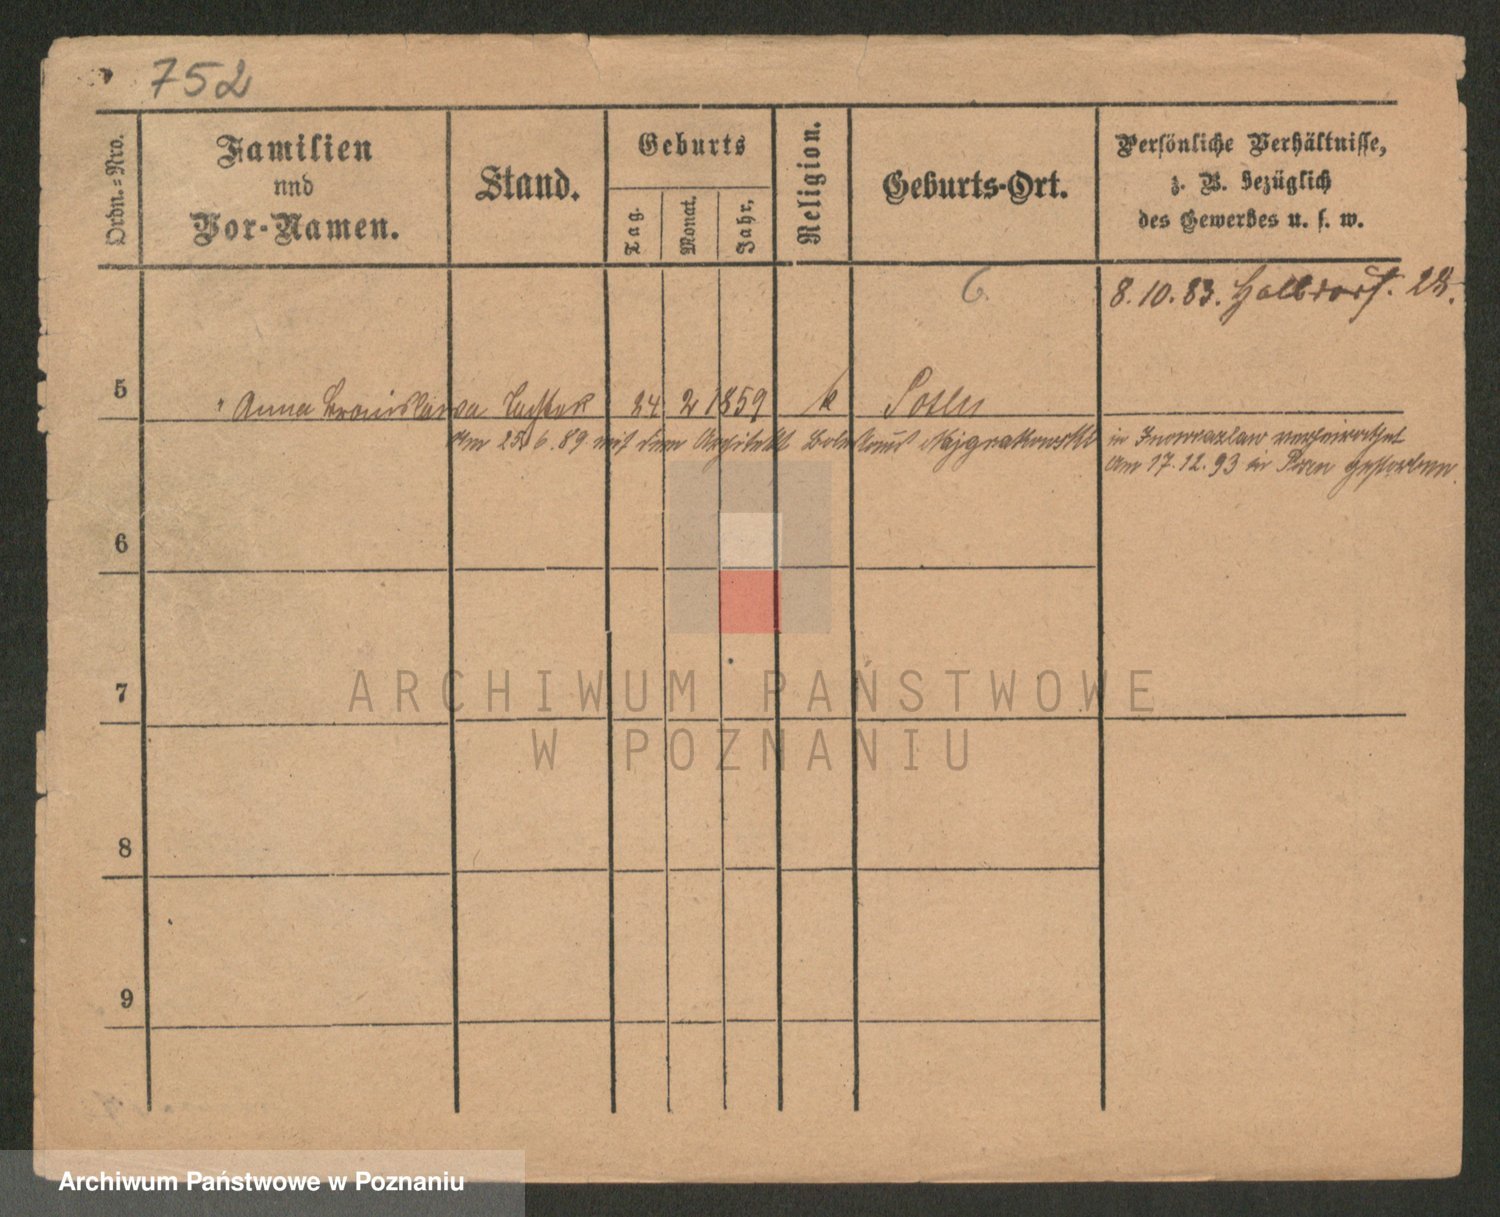 752
Ordn.=Nro.
Familien
nnd
Vor-Namen.
Stand.
Geburts
Tag.
Monat.
Jahr,
Religion.
Geburts-Ort.
Persönliche Verhältnisse,
z. B. bezüglich
des Gewerbes u. s. w.
6
8.10.83. Halbdorf. 28.
5
" Anna Bronislawa Tochter 24 2 1859 k Posen
Am 25.6.89 mit dem Architekt Boleslaus Najgrakowski in Inowrazlaw verheirathet
Am 17.12.93 in gestorben.
6
7
8
9
ARCHIWUM PAŃSTWOWE
W POZNANIU
Archiwum Państwowe w Poznaniu